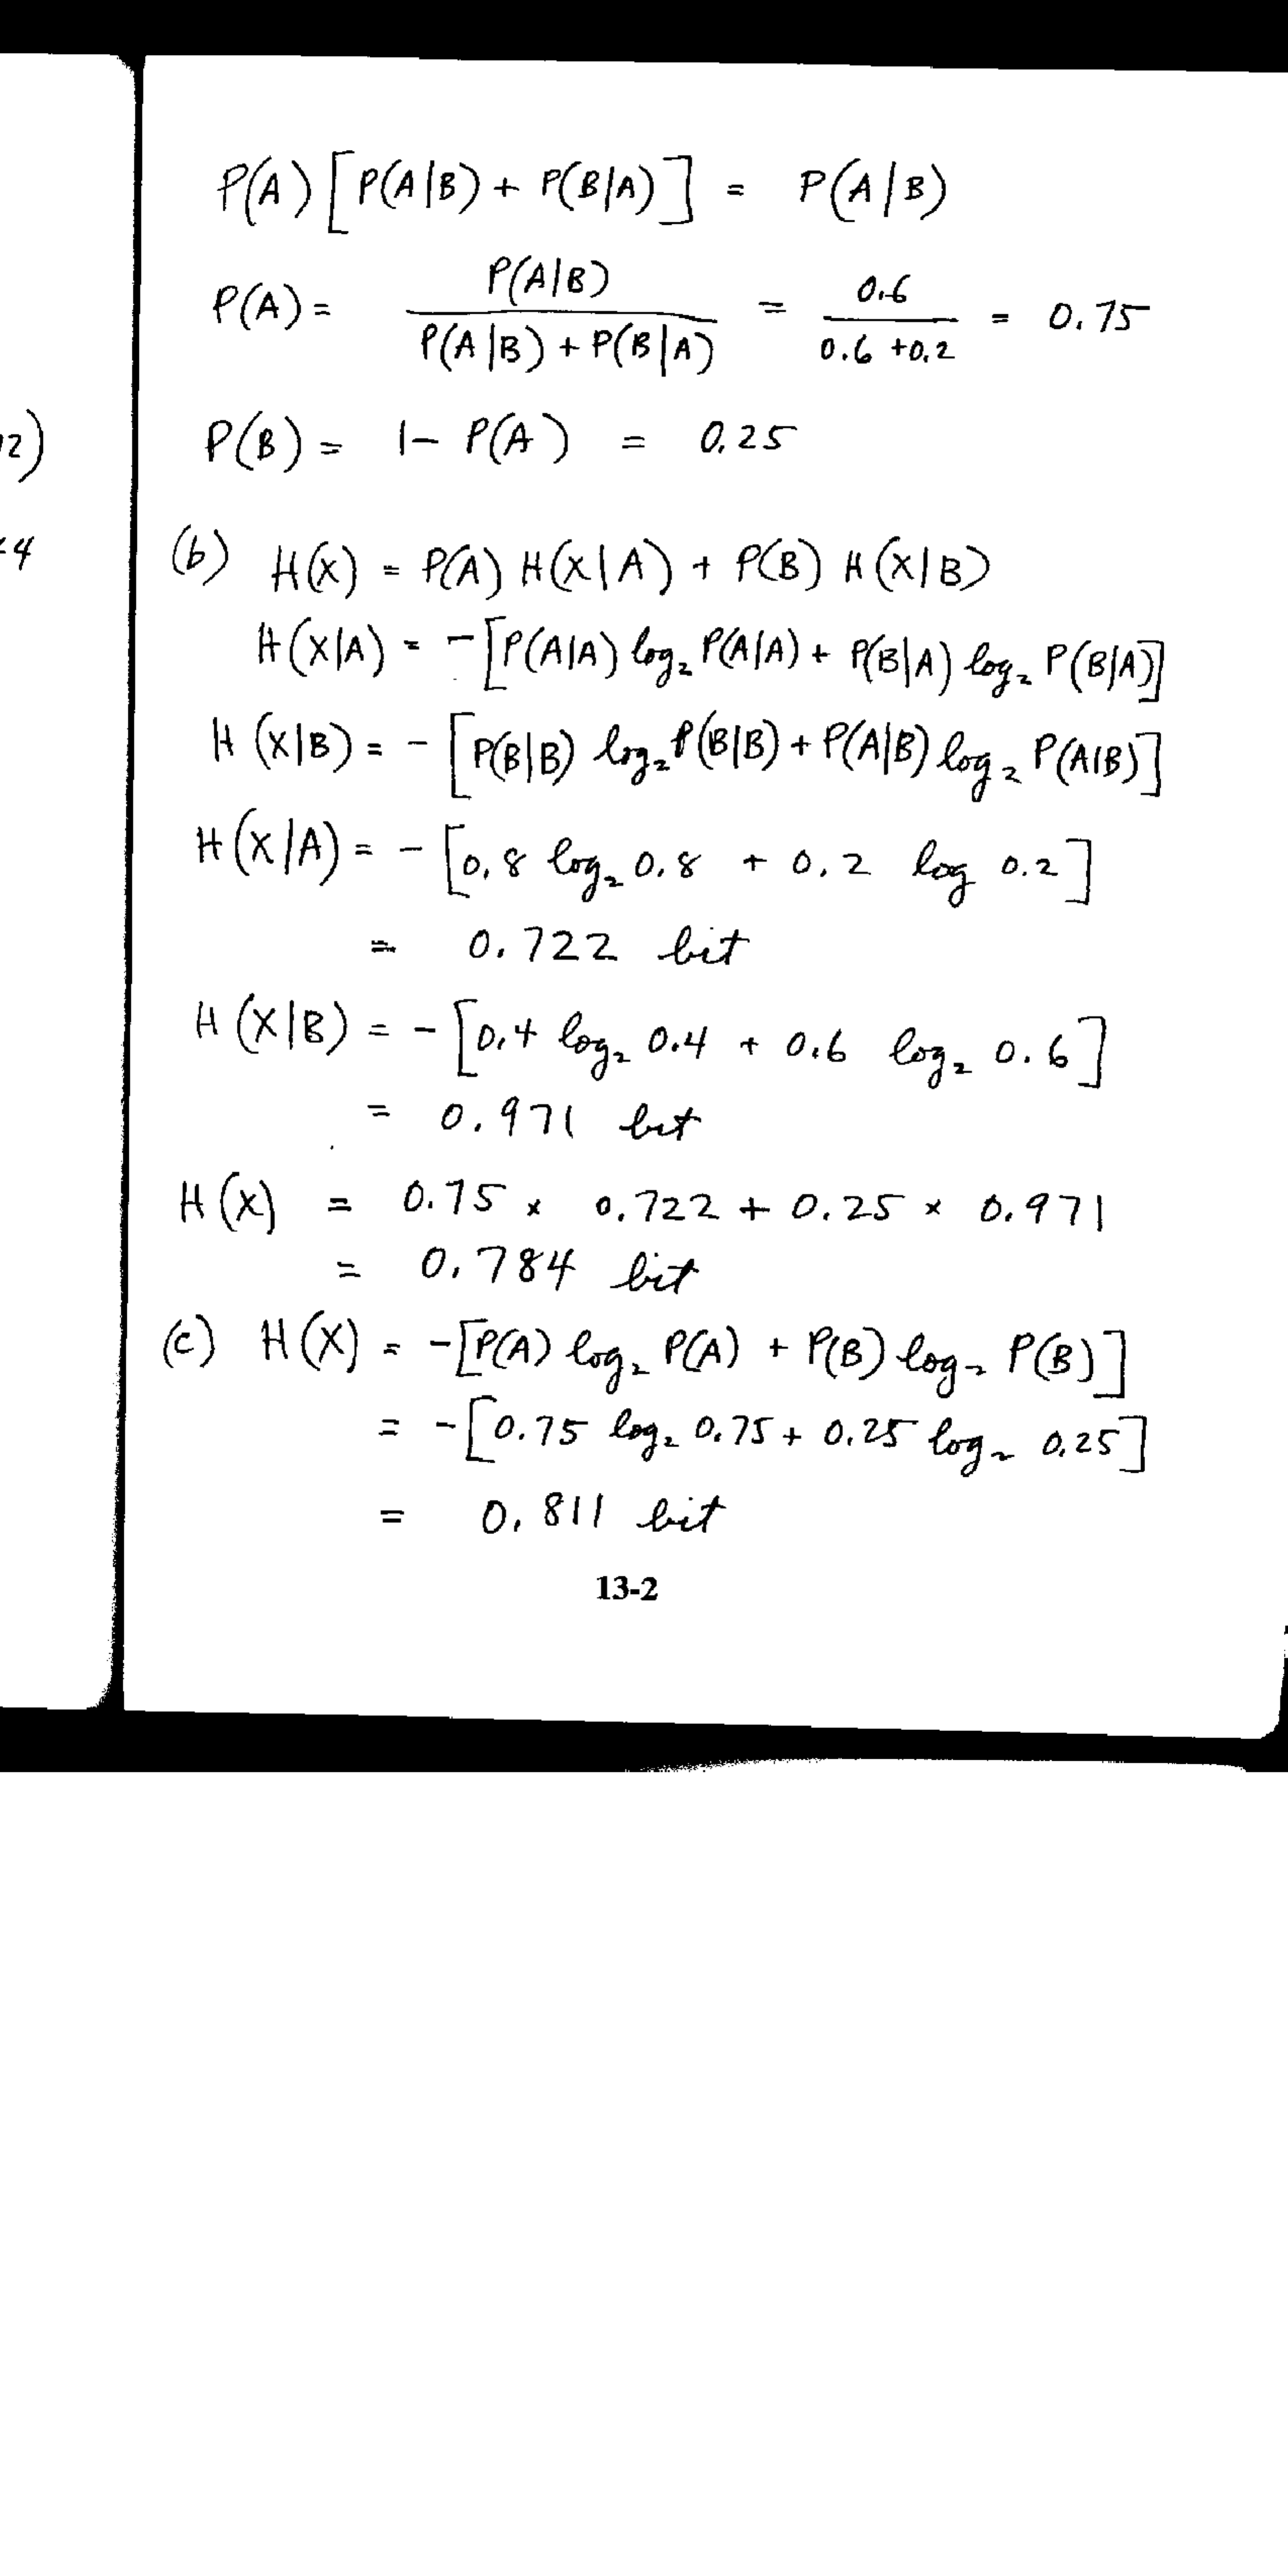 P(A) [P(A|B) + P(B|A)] = P(A|B)
P(A) = P(A|B) / (P(A|B) + P(B|A)) = 0.6 / (0.6 + 0.2) = 0.75
2)
P(B) = 1 - P(A) = 0.25
4
(b) H(X) = P(A) H(X|A) + P(B) H(X|B)
H(X|A) = -[P(A|A) log₂ P(A|A) + P(B|A) log₂ P(B|A)]
H(X|B) = -[P(B|B) log₂ P(B|B) + P(A|B) log₂ P(A|B)]
H(X|A) = -[0.8 log₂ 0.8 + 0.2 log 0.2]
= 0.722 bit
H(X|B) = -[0.4 log₂ 0.4 + 0.6 log₂ 0.6]
= 0.971 bit
H(X) = 0.75 × 0.722 + 0.25 × 0.971
= 0.784 bit
(c) H(X) = -[P(A) log₂ P(A) + P(B) log₂ P(B)]
= -[0.75 log₂ 0.75 + 0.25 log₂ 0.25]
= 0.811 bit
13-2